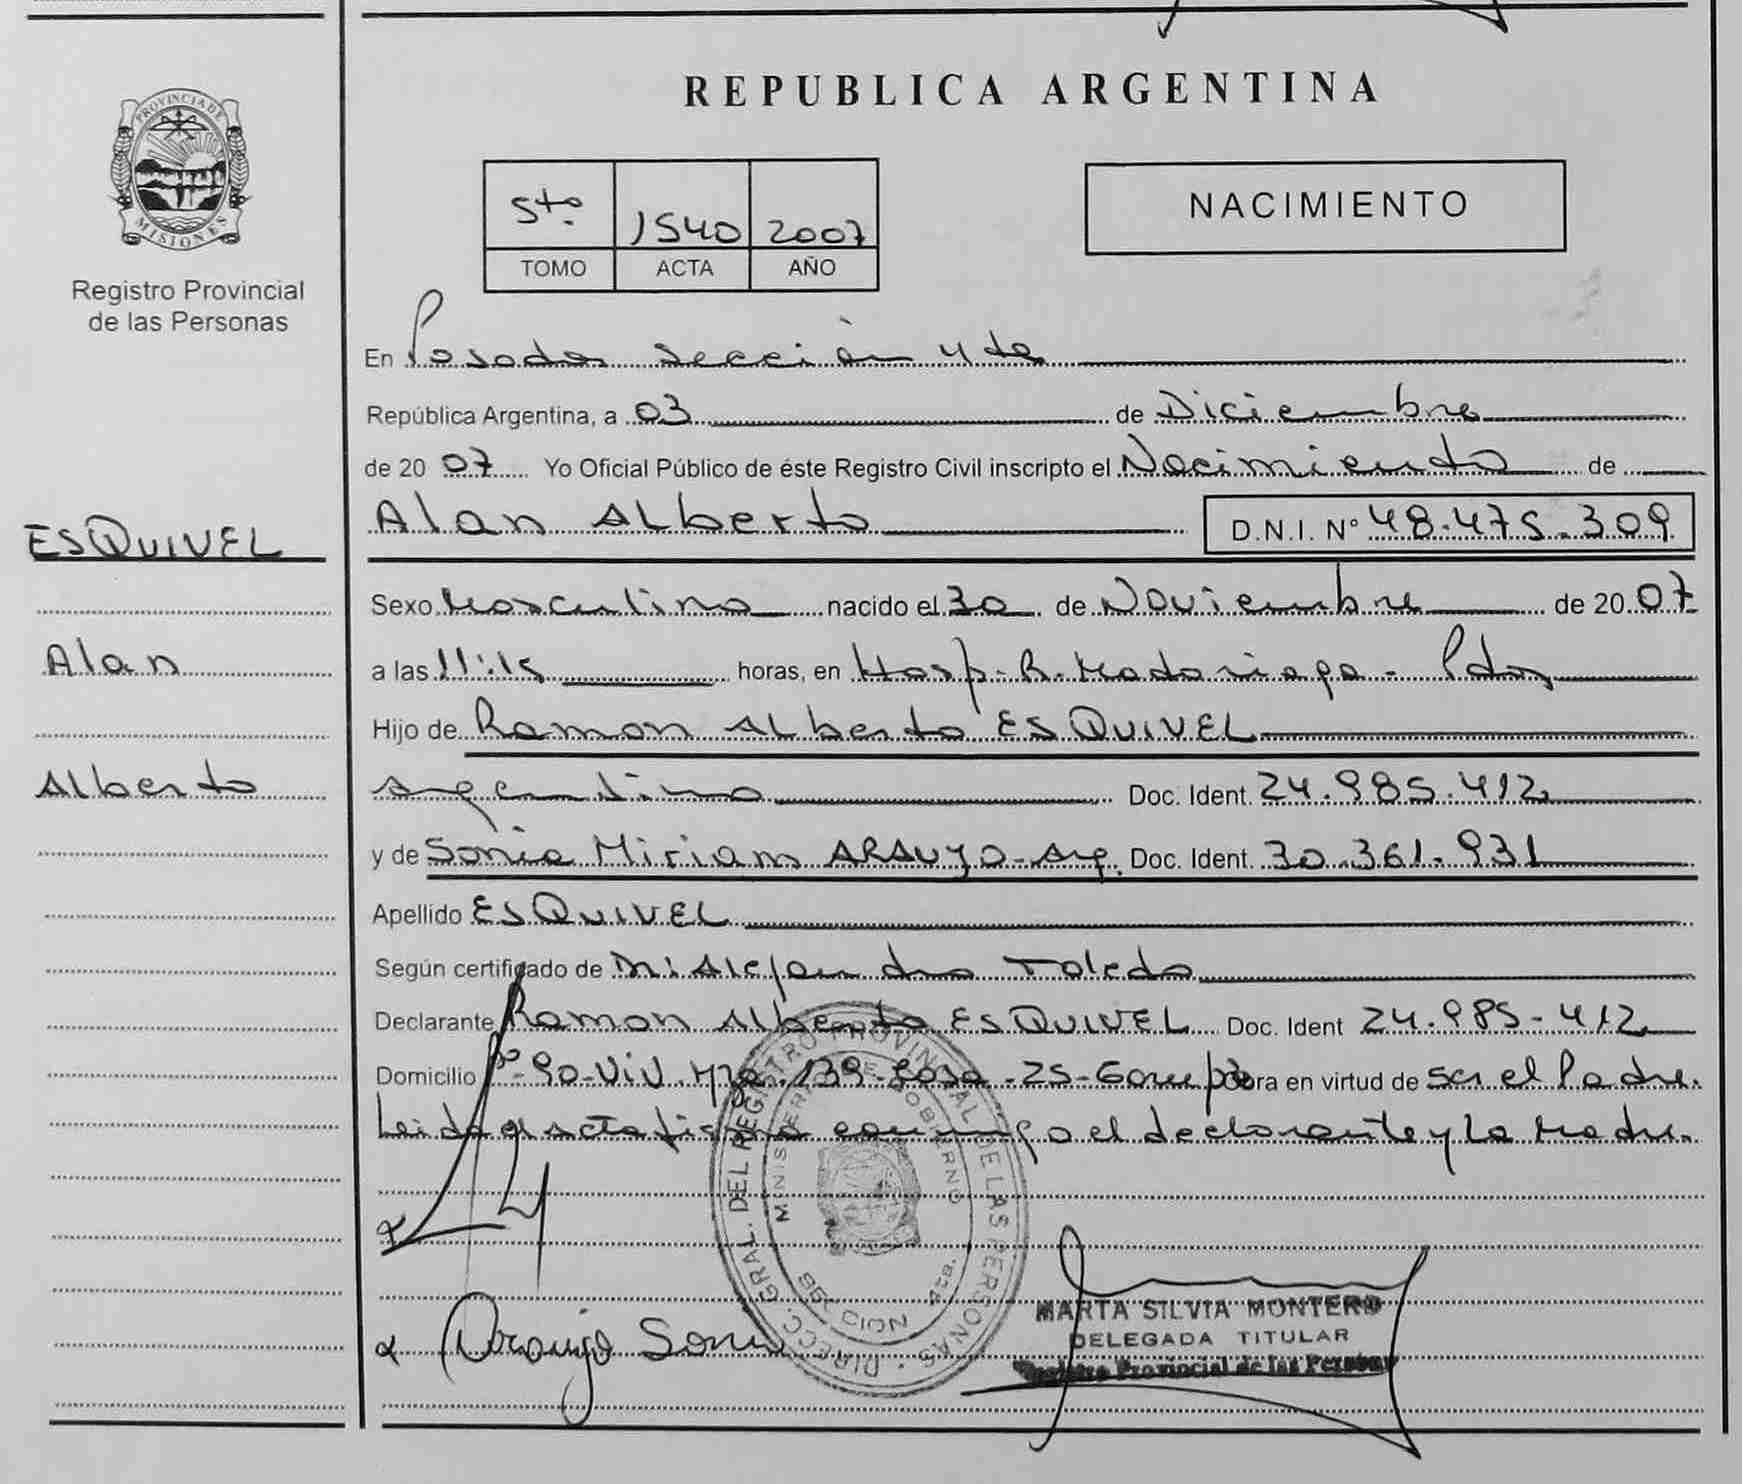 REPUBLICA ARGENTINA
PROVINCIA DE
MISIONES
Registro Provincial
de las Personas
5to 1540 2007
TOMO ACTA AÑO
NACIMIENTO
En Posadas sección 4ta
República Argentina, a 03 de Diciembre
de 2007 Yo Oficial Público de éste Registro Civil inscripto el Nacimiento de
ESQUIVEL
Alan Alberto D.N.I. Nº 48.475.309
Sexo Masculino nacido el 30 de Noviembre de 2007
Alan
a las 11:15 horas, en Hosp. R. Madariaga - Pdas
Hijo de Ramon Alberto ESQUIVEL
Alberto
argentino Doc. Ident. 24.985.412
y de Sonia Miriam ARAUJO - Arg. Doc. Ident. 30.361.931
Apellido ESQUIVEL
Según certificado de Alejandro Toledo
Declarante Ramon Alberto ESQUIVEL Doc. Ident 24.985-412
Domicilio 90-Viv. Mza. 139-Casa-25- obra en virtud de ser el Padre.
Leida el acta firma conmigo el declarante y la Madre.
DIRECC. GRAL. DEL REGISTRO PROVINCIAL DE LAS PERSONAS
MINISTERIO DE GOBIERNO
Araujo Sonia
MARTA SILVIA MONTERO
DELEGADA TITULAR
Registro Provincial de las Personas